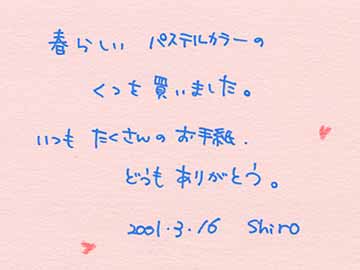 春らしい パステルカラーの
くつを買いました。
いつも たくさんの お手紙.
どうも ありがとう。
2001.3.16 Shiro